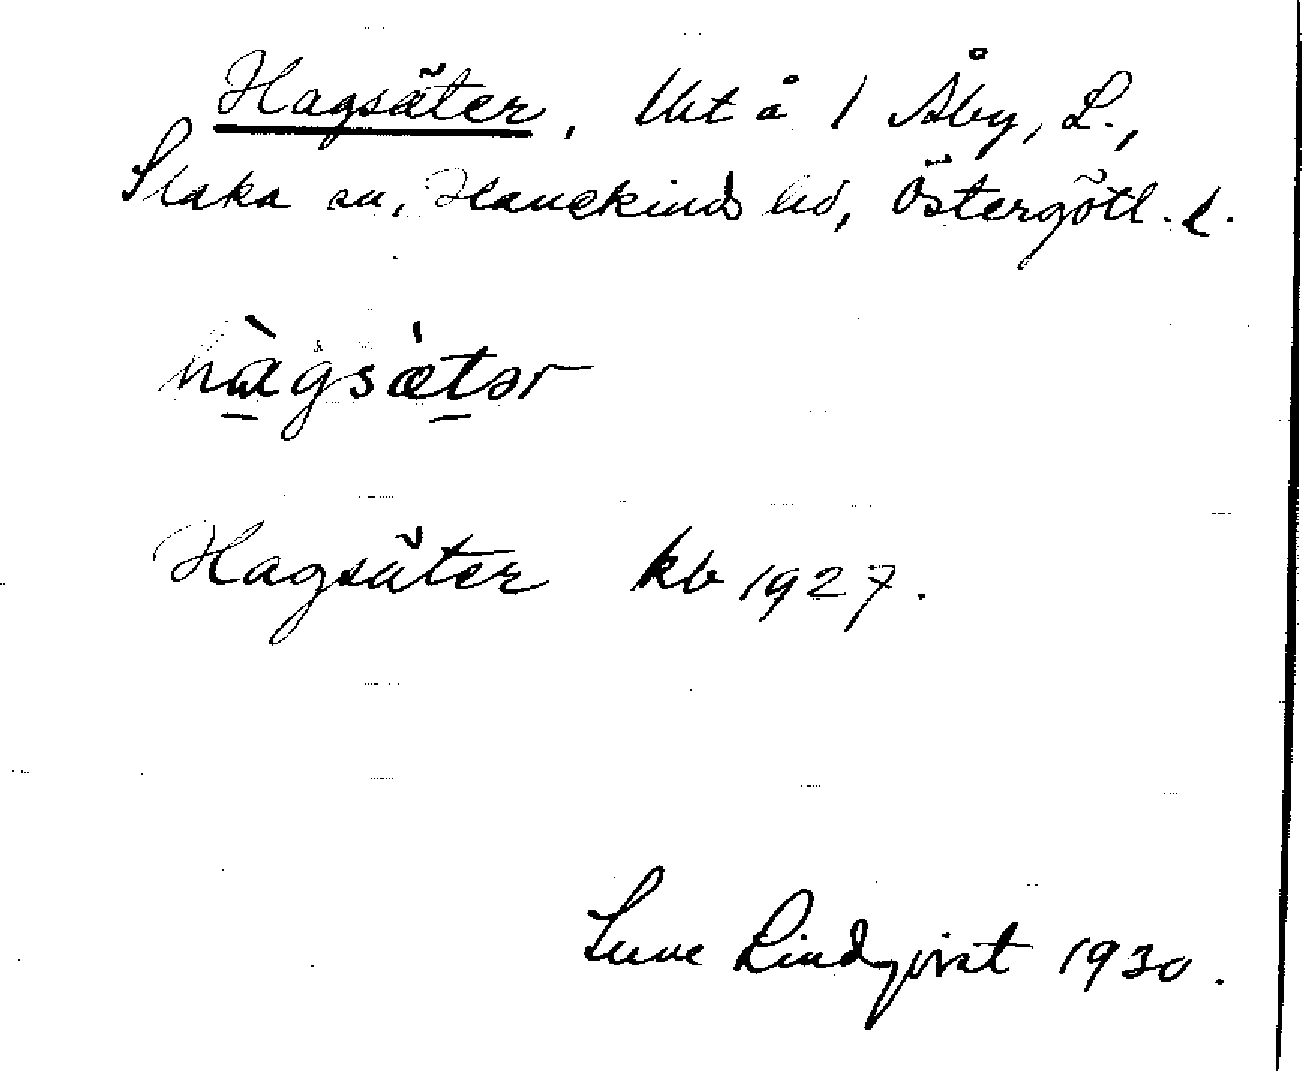 Hagsäter, Utt å 1 Åby, L.,
Slaka sn, Hanekinds hd, Östergötl. l.
hàgsæ̀tər
Hagsäter kb 1927.
Sune Lindqvist 1930.